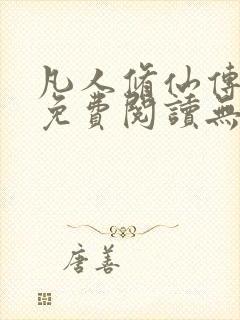 凡人脩仙傳
免費閱讀無
唐善